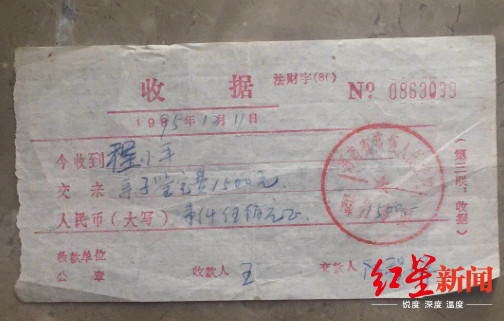 收 据 法财字(81) Nº 0863039
1995年12月11日
今收到 程小平
交来 亲子鉴定费1500元.
人民币(大写) 壹仟伍佰元正
收款单位
公 章 收款人 王 交款人
(第二联:收据)
1500
红星新闻
锐度 深度 温度